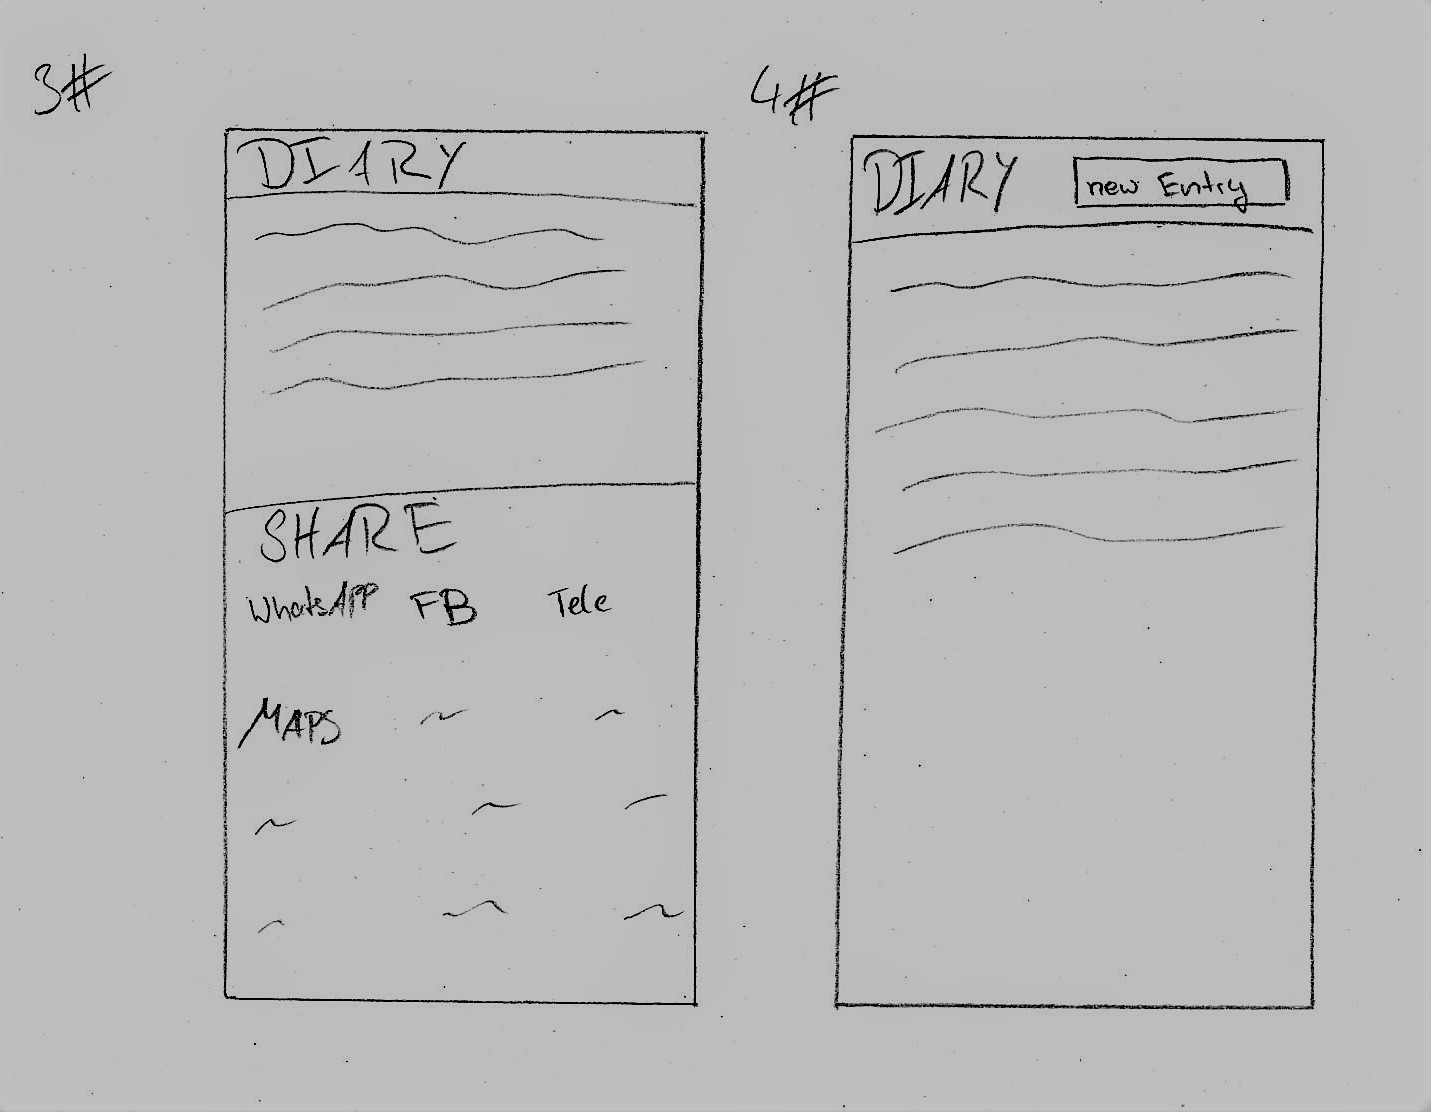 3#
DIARY
SHARE
WhatsAPP FB Tele
MAPS
4#
DIARY
new Entry